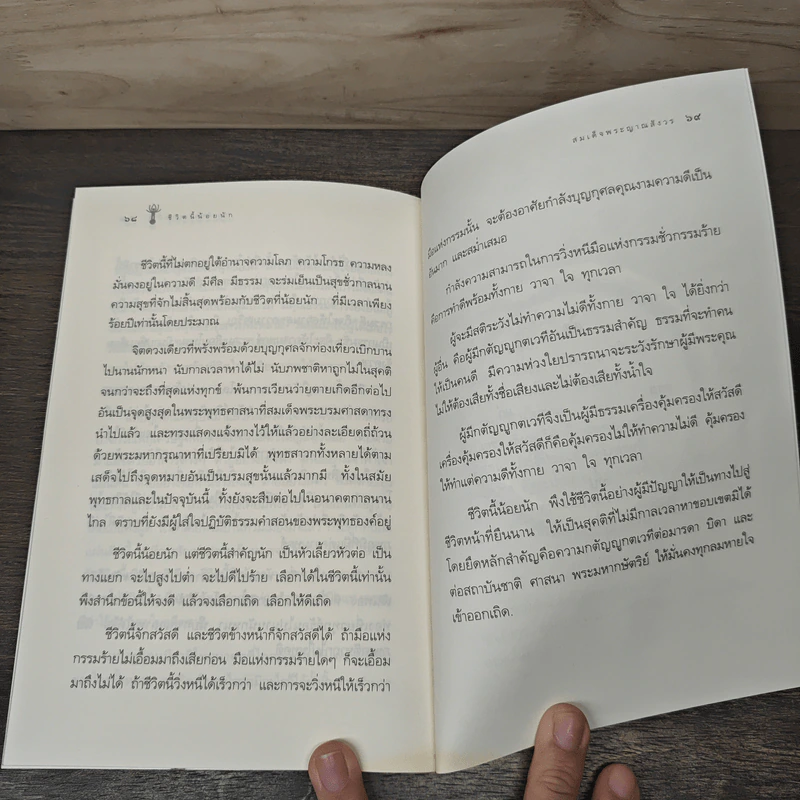 ๖๘ ชีวิตนี้น้อยนัก
ชีวิตนี้ที่ไม่ตกอยู่ใต้อำนาจความโลภ ความโกรธ ความหลง
มั่นคงอยู่ในความดี มีศีล มีธรรม จะร่มเย็นเป็นสุขชั่วกาลนาน
ความสุขที่จักไม่สิ้นสุดพร้อมกับชีวิตที่น้อยนัก ที่มีเวลาเพียง
ร้อยปีเท่านั้นโดยประมาณ
จิตดวงเดียวที่พรั่งพร้อมด้วยบุญกุศลจักท่องเที่ยวเบิกบาน
ไปนานนักหนา นับกาลเวลาหาได้ไม่ นับภพชาติหาถูกไม่ในสุคติ
จนกว่าจะถึงที่สุดแห่งทุกข์ พ้นการเวียนว่ายตายเกิดอีกต่อไป
อันเป็นจุดสูงสุดในพระพุทธศาสนาที่สมเด็จพระบรมศาสดาทรง
นำไปแล้ว และทรงแสดงแจ้งทางไว้ให้แล้วอย่างละเอียดถี่ถ้วน
ด้วยพระมหากรุณาหาที่เปรียบมิได้ พุทธสาวกทั้งหลายได้ตาม
เสด็จไปถึงจุดหมายอันเป็นบรมสุขนั้นแล้วมากมี ทั้งในสมัย
พุทธกาลและในปัจจุบันนี้ ทั้งยังจะสืบต่อไปในอนาคตกาลนาน
ไกล ตราบที่ยังมีผู้ใส่ใจปฏิบัติธรรมคำสอนของพระพุทธองค์อยู่
ชีวิตนี้น้อยนัก แต่ชีวิตนี้สำคัญนัก เป็นหัวเลี้ยวหัวต่อ เป็น
ทางแยก จะไปสูงไปต่ำ จะไปดีไปร้าย เลือกได้ในชีวิตนี้เท่านั้น
พึงสำนึกข้อนี้ให้จงดี แล้วจงเลือกเถิด เลือกให้ดีเถิด
ชีวิตนี้จักสวัสดี และชีวิตข้างหน้าก็จักสวัสดีได้ ถ้ามือแห่ง
กรรมร้ายไม่เอื้อมมาถึงเสียก่อน มือแห่งกรรมร้ายใดๆ ก็จะเอื้อม
มาถึงไม่ได้ ถ้าชีวิตนี้วิ่งหนีได้เร็วกว่า และการจะวิ่งหนีให้เร็วกว่า
สมเด็จพระญาณสังวร ๖๙
มือแห่งกรรมนั้น จะต้องอาศัยกำลังบุญกุศลคุณงามความดีเป็น
อันมาก และสม่ำเสมอ
กำลังความสามารถในการวิ่งหนีมือแห่งกรรมชั่วกรรมร้าย
คือการทำดีพร้อมทั้งกาย วาจา ใจ ทุกเวลา
ผู้จะมีสติระวังไม่ทำความไม่ดีทั้งกาย วาจา ใจ ได้ยิ่งกว่า
ผู้อื่น คือผู้มีกตัญญูกตเวทีอันเป็นธรรมสำคัญ ธรรมที่จะทำคน
ให้เป็นคนดี มีความห่วงใยปรารถนาจะระวังรักษาผู้มีพระคุณ
ไม่ให้ต้องเสียทั้งชื่อเสียงและไม่ต้องเสียทั้งน้ำใจ
ผู้มีกตัญญูกตเวทีจึงเป็นผู้มีธรรมเครื่องคุ้มครองให้สวัสดี
เครื่องคุ้มครองให้สวัสดีก็คือคุ้มครองไม่ให้ทำความไม่ดี คุ้มครอง
ให้ทำแต่ความดีทั้งกาย วาจา ใจ ทุกเวลา
ชีวิตนี้น้อยนัก พึงใช้ชีวิตนี้อย่างผู้มีปัญญาให้เป็นทางไปสู่
ชีวิตหน้าที่ยืนนาน ให้เป็นสุคติที่ไม่มีกาลเวลาหาขอบเขตมิได้
โดยยึดหลักสำคัญคือความกตัญญูกตเวทีต่อมารดา บิดา และ
ต่อสถาบันชาติ ศาสนา พระมหากษัตริย์ ให้มั่นคงทุกลมหายใจ
เข้าออกเถิด.